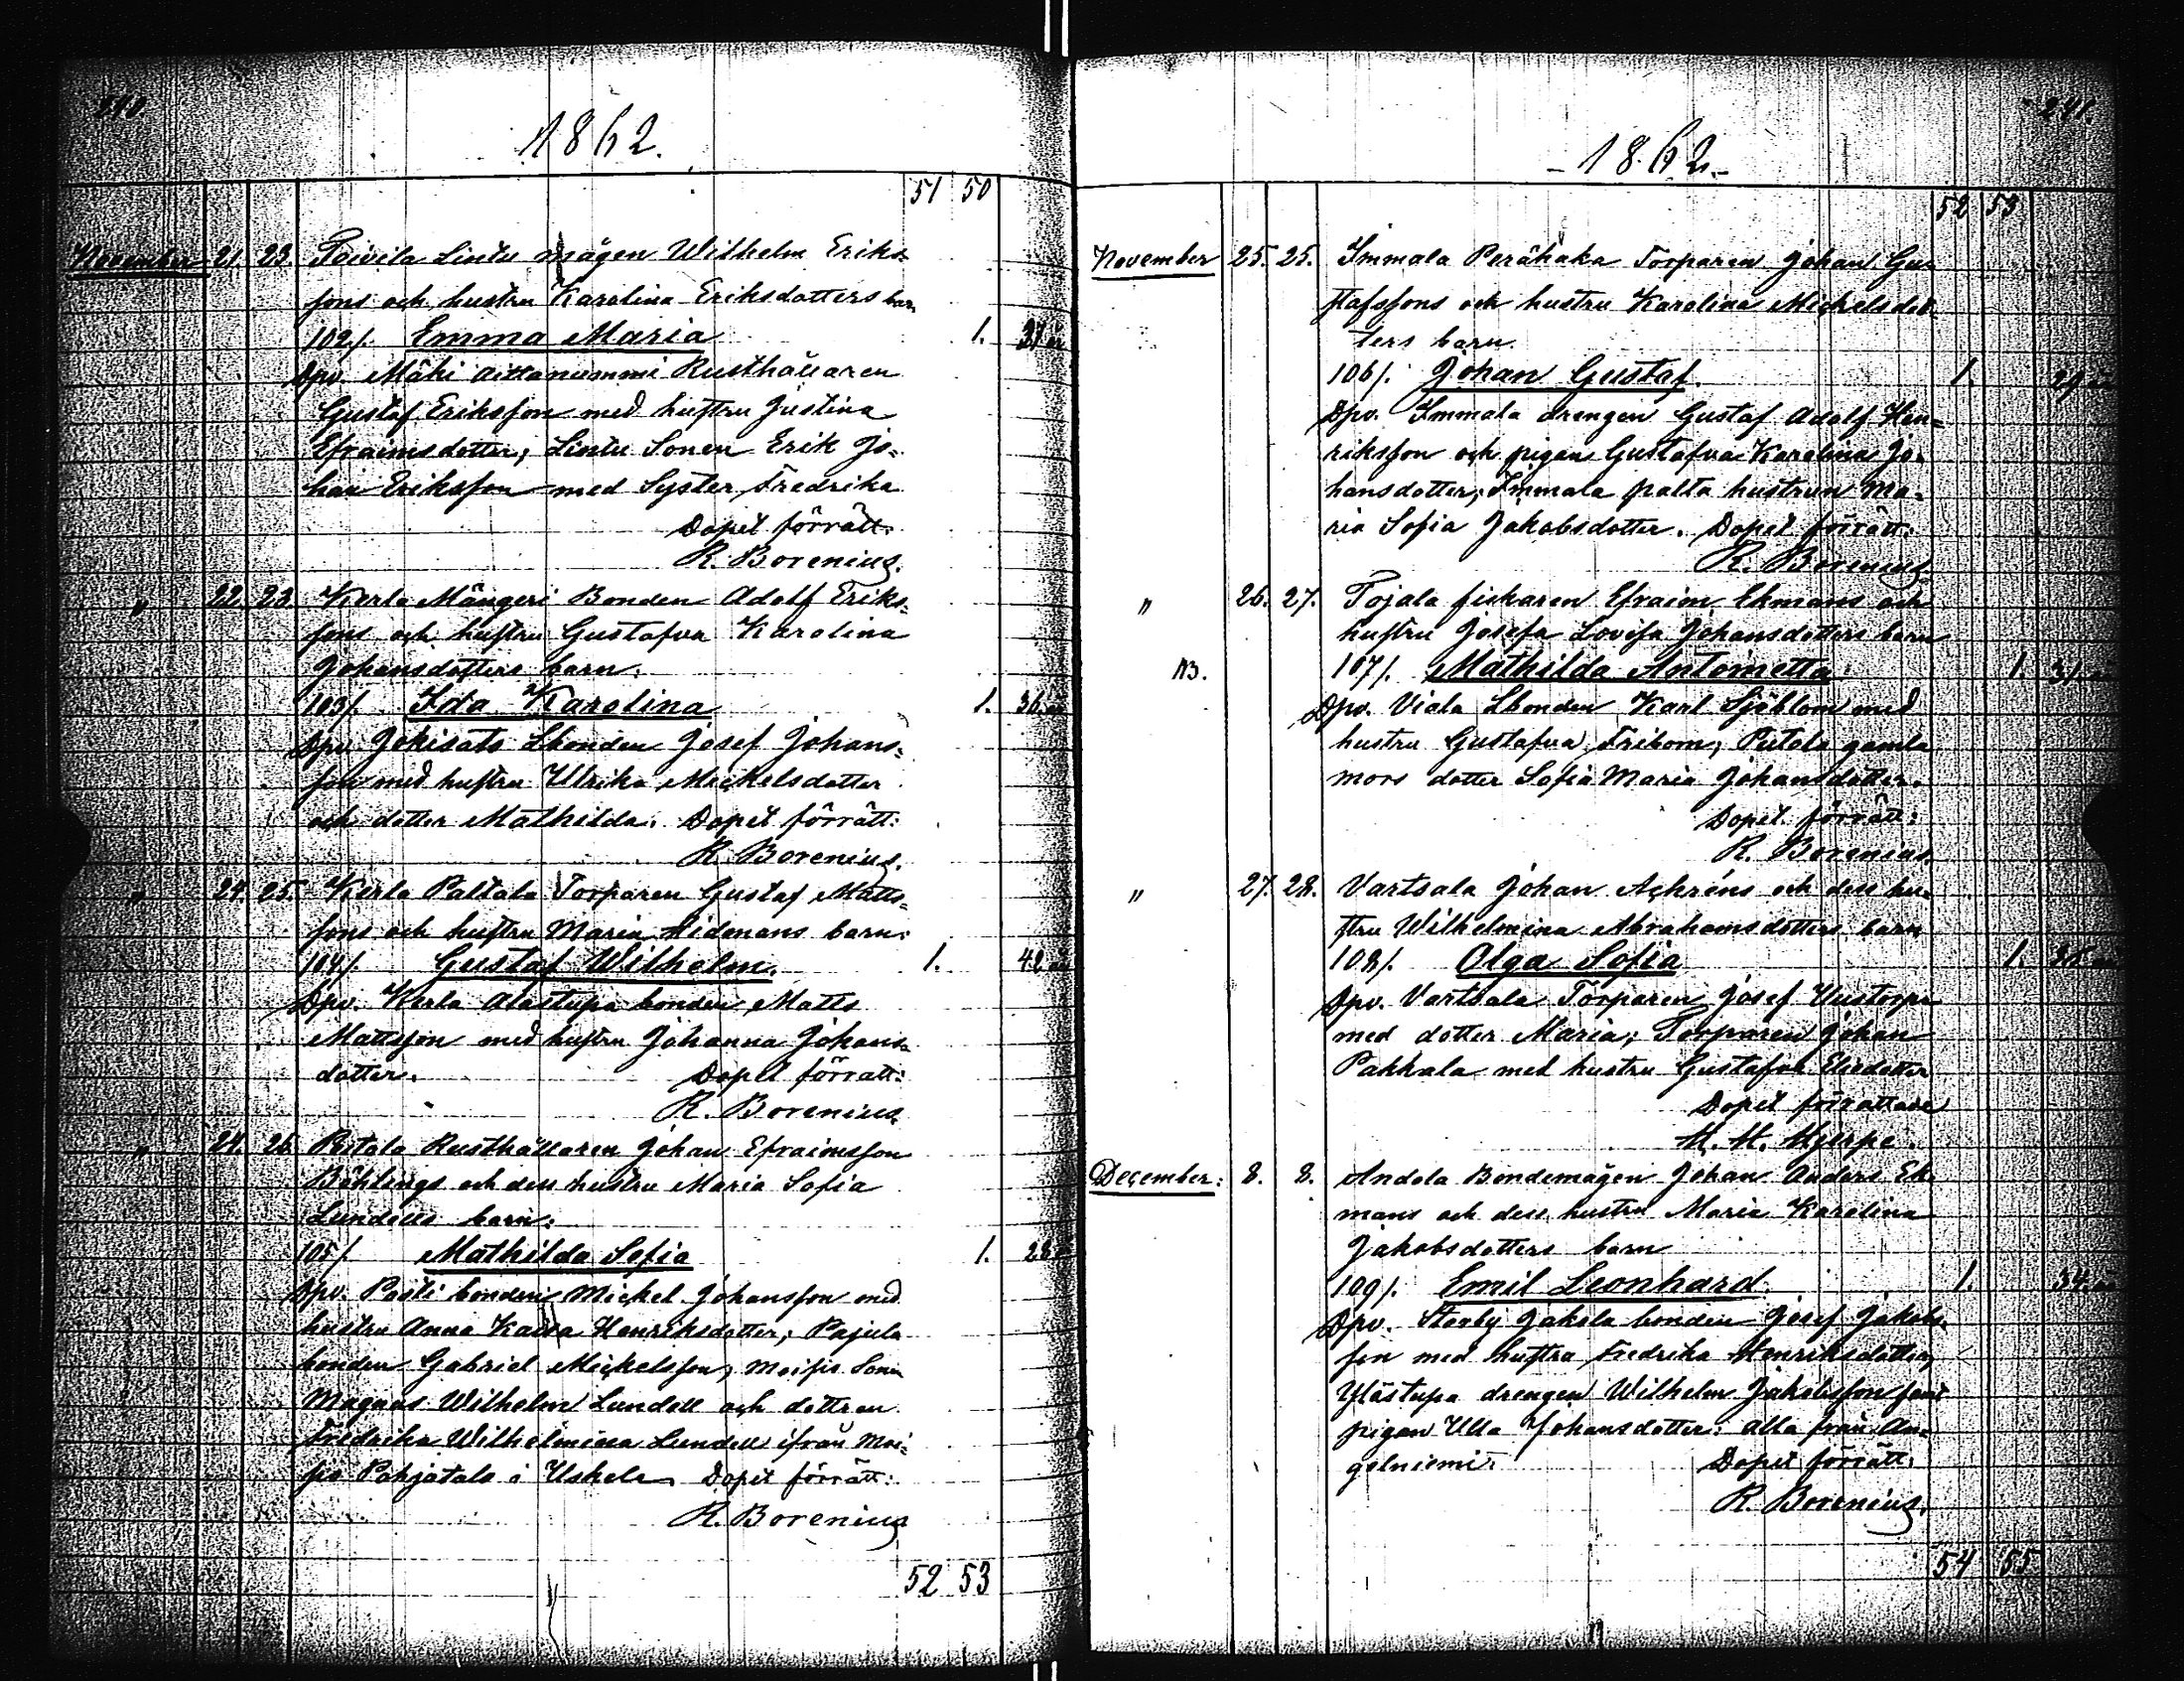 240.
1862.
51 50
November 21. 23. Toivila Lintu mågen Wilhelm Eriks-
sons och hustru Karolina Eriksdotters barn
102/. Emma Maria 1. 31 år
Dpv. Mähi Aittaniemmi Rusthållaren
Gustaf Eriksson med hustru Justina
Efraimsdotter; Lintu Sonen Erik Jo-
han Eriksson med Syster Fredrika
Dopet förrätt:
R. Borenius.
" 22. 23. Kerla Mångeri Bonden Adolf Eriks-
sons och hustru Gustafva Karolina
Johansdotters barn:
103/. Ida Karolina 1. 36 år
Dpv. Jokisato Lbonden Josef Johans-
son med hustru Ulrika Mickelsdotter
och dotter Mathilda. Dopet förrätt:
R. Borenius.
" 24. 25. Kerla Paltala Torparen Gustaf Matts-
sons och hustru Maria Hidenans barn:
104/. Gustaf Wilhelm. 1. 42 år
Dpv. Kerla Alastupa bonden Matts
Mattsson med hustru Johanna Johans-
dotter. Dopet förrätt:
R. Borenius
" 24. 26. Rusthållaren Johan Efraimsson
Böhlings och dess hustru Maria Sofia
Lundells barn:
105/. Mathilda Sofia 1. 28 år
Dpv. Pasti bonden Mickel Johansson med
hustru Anna Kaisa Henriksdotter; Pajula
bonden Gabriel Mickelsson; Moisio Sonen
Magnus Wilhelm Lundell och dottren
Fredrika Wilhelmina Lundell ifrån Moi-
sio Pohjatalo i Uskela. Dopet förrätt:
R. Borenius
52 53
241.
-1862.-
52 53
November 25. 25. Immala Perähaka Torparen Johan Gu-
stafssons och hustru Karolina Mickelsdot
ters barn.
106/. Johan Gustaf. 1. 29 år
Dpv. Immala drengen Gustaf Adolf Hen-
riksson och pigan Gustafva Karolina Jo-
hansdotter; Immala palta hustrun Ma-
ria Sofia Jakobsdotter. Dopet förrätt:
R. Borenius
" 26. 27. Tojala fiskaren Efraim Ekmans och
hustru Josefa Lovisa Johansdotters barn
NB. 107/. Mathilda Antoinetta 1. 31 år
Dpv. Viala Lbonden Karl Sjöblom med
hustru Gustafva Fribom; gamla
mors dotter Sofia Maria Johansdotter.
Dopet förrätt:
R. Borenius
" 27. 28. Vartsala Johan Achréns och dess hu-
stru Wilhelmina Abrahamsdotters barn
108/. Olga Sofia 1.
Dpv. Vartsala Torparen Josef
med dotter Maria; Torparen Johan
Pakkala med hustru Gustafva Eliedotter
Dopet förrättade
H. H. Hjerpe.
December: 8. 8. Andola Bondemågen Johan Anders Ek
mans och dess hustru Maria Karolina
Jakobsdotters barn
109/. Emil Leonhard. 1. 34 år
Dpv. Storby Jakola bonden Josef Jakobs-
son med hustru Fredrika Henriksdotter,
Ylästupa drengen Wilhelm Jakobsson samt
pigan Ulla Johansdotter: alla från An-
gelniemi. Dopet förrätt:
R. Borenius.
54 55